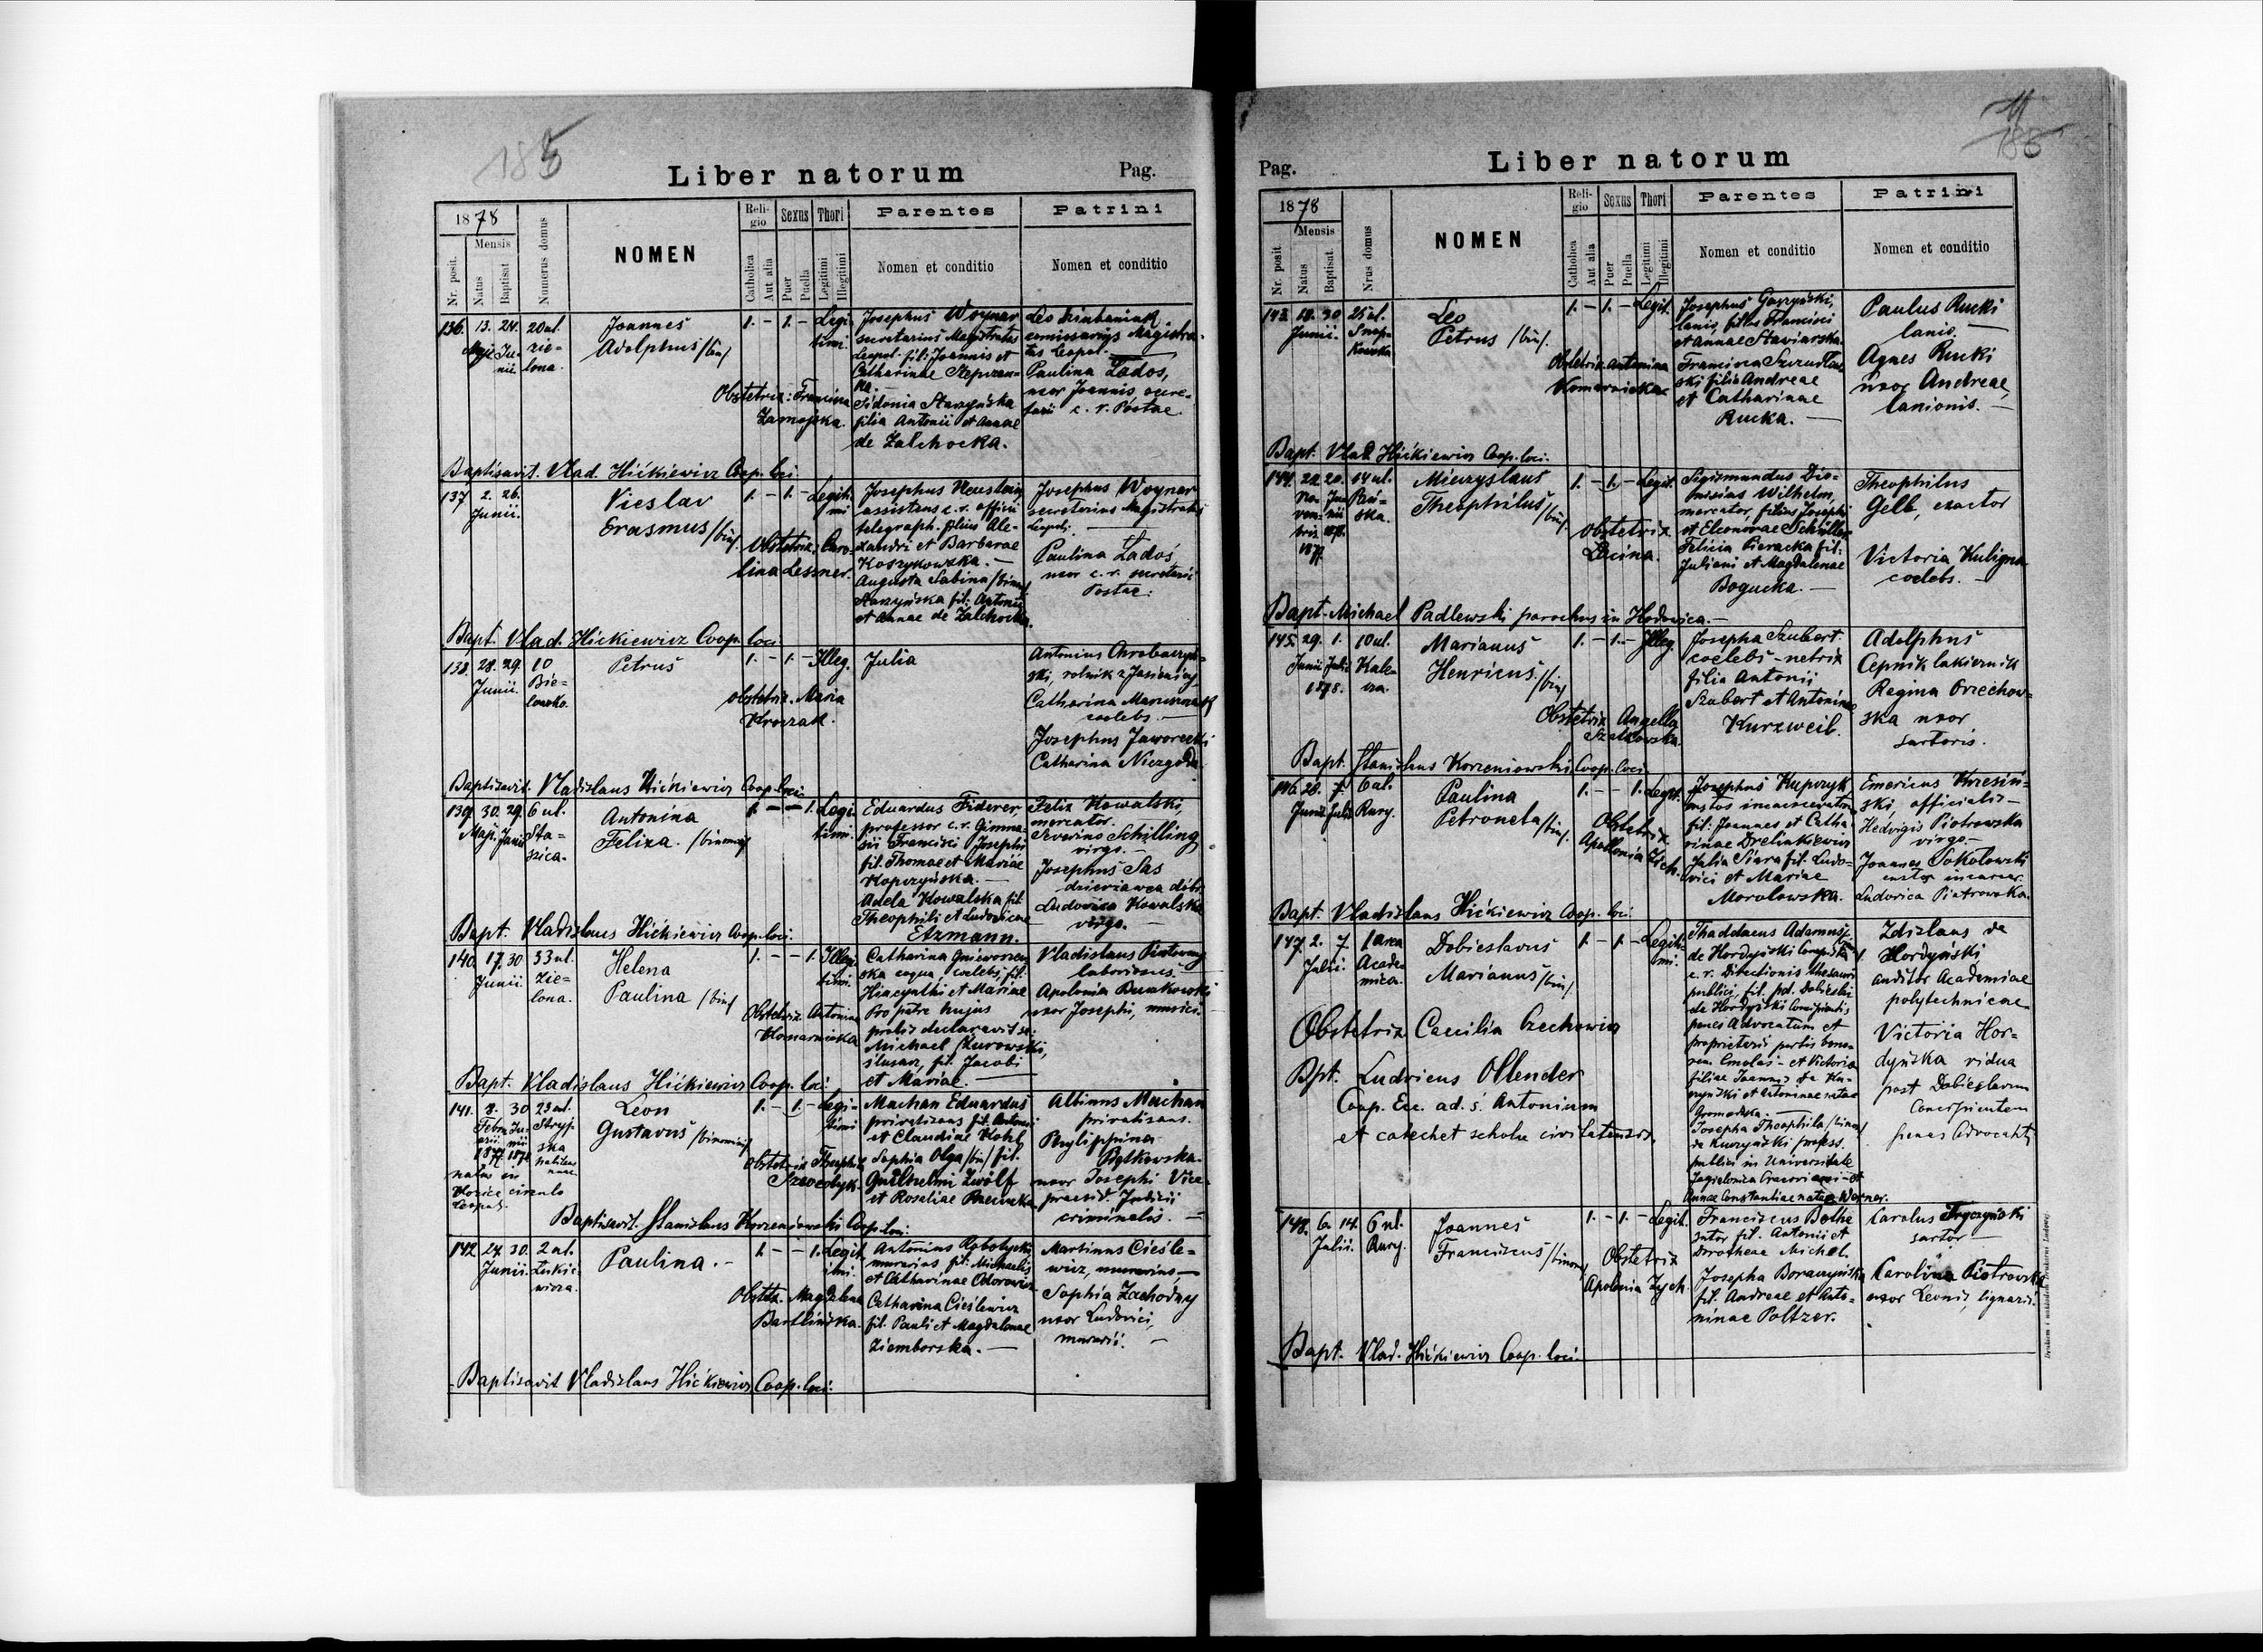 185
Liber natorum
Pag.
1878
Mensis
Nr. posit.
Natus
Baptisat
Numerus domus
NOMEN
Religio
Catholica
Aut alia
Sexus
Puer
Puella
Thori
Legitimi
Illegitimi
Parentes
Nomen et conditio
Patrini
Nomen et conditio
136. 13. 24. 20 ul.
Maji Junii. zielona.
Joannes
Adolphus /bin/
1. - 1. - Legitimi.
Obstetrix: Francisca
Zamojska.
Josephus Woynar
secretarius Magistratus
Leopol. fil: Joannis et
Catharinae Szepczanka.
Sidonia Starzyńska
filia Antonii et Annae
de Zalchocka.
Leo
comissarius Magistratus Leopol.
Paulina Lados,
uxor Joannis secretarii c. r. Postae.
Baptisavit. Vlad. Hićkiewicz Coop. loci.
137 2. 26.
Junii.
Vieslav
Erasmus /bin/
1. - 1. - Legitimi
Obstetrix: Carolina Lessner.
Josephus Neustein
assistens c. r. officii
telegraph. filius Alexandri et Barbarae
Koszykowska. -
Augusta Sabina /binom/
Starzyńska fil: Antonii
et Annae de Zalchocka.
Josephus Woynar
secretarius Magistratus
Leopoli.
Paulina Ladoś
uxor c. r. secretarii
Postae.
Bapt. Vlad. Hićkiewicz Coop. loci.
138. 28. 29. 10
Junii. Bielowsko.
Petrus
1. - 1. - Illeg.
obstetrix. Maria
Kroczak.
Julia
Antonius
rolnik z
Catharina
coelebs. -
Josephus Jaworecki
Catharina Niezgoda
Baptisavit. Vladislaus Hićkiewicz Coop. loci.
139. 30. 29. 6 ul.
Maji. Junii Staszica.
Antonina
Felixa. /binomin/
1. - - 1. Legitimi.
Eduardus Fiderer,
professor c. r. Gimnasii Francisci Josephi
fil. Thomae et Mariae
Kopczyńska. -
Adela Kowalska fil.
Theophili et Ludovicae
Etzmann.
Felix Kowalski,
mercator.
Severina Schilling
virgo. -
Josephus Sas
dzierżawca dóbr.
Ludovica Kowalska
virgo. -
Bapt. Vladislaus Hićkiewicz Coop. loci.
140. 17. 30 33 ul.
Junii Zielona.
Helena
Paulina /bin/
1. - - 1. Illegitimi.
Obstetrix. Antonina
Komarnicka
Catharina
coqua, coelebs, fil.
Hiacynthi et Mariae
Pro patre hujus
prolis declaravit se:
Michael Żurowski,
ślusarz, fil. Jacobi
et Mariae.
Vladislaus
laboriosus. -
Apolonia
uxor Josephi, murarii.
Bapt. Vladislaus Hićkiewicz Coop. loci.
141. 8. 30 29 ul.
Februarii Junii Stryjska
1877. 1878.
natus in
circulo
Leopol.
Leon
Gustavus /binomin/
1. - 1. - Legitimi
Obstetrix Theophila
Machan Eduardus
privatisans fil. Antonii
et Claudiae Kohl,
Sophia Olga /bin/ fil.
Guilhelmi Zwölf
et Rosaliae
Albinus Machan
privatisans.
Phylippina
Piątkowska
uxor Josephi Vicepraesid. Judicii
criminalis. -
Baptisavit. Stanislaus Korzeniowski Coop. loci.
142. 24. 30. 2 ul.
Junii. Łukiewicza.
Paulina. -
1. - - 1. Legitimi.
Obsttx. Magdalena
Bartlińska.
Antonius Robotycki,
murarius fil: Michaelis
et Catharinae Odorowicz
Catharina Cieślewicz
fil. Pauli et Magdalenae
Ziemborska. -
Martinus Cieślewicz, murarius, -
Sophia Zachodny
uxor Ludovici,
murarii. -
Baptisavit Vladislaus Hićkiewicz Coop. loci.
Pag.
Liber natorum
186
1878
Mensis
Nr. posit
Natus
Baptisat.
Nrus domus
NOMEN
Religio
Catholica
Aut alia
Sexus
Puer
Puella
Thori
Legitimi
Illegitimi
Parentes
Nomen et conditio
Patrini
Nomen et conditio
143. 18. 30 25 ul.
Junii. Snopkowska
Leo
Petrus /bin/.
1. - 1. - Legit.
Obstetrix Antonina
Komarnicka
Josephus Gaszyński,
lanio, filius Francisci
et Annae Stawiarska.
Francisca
filia Andreae
et Catharinae
Rucka. -
Paulus Rucki
lanio. -
Agnes Rucki
uxor Andreae,
lanionis. -
Bapt. Vlad Hićkiewicz Coop. loci.
144. 21. 20. 14 ul.
Novembris Junii
1877. 1878.
Mieczyslaus
Theophilus /bin/
1. - 1. - Legit.
obstetrix
Lucina.
Sigismundus Dionisius Wilhelm,
mercator, filius Josephi
et Eleonorae Schüller
Felicia Pieracka fil:
Juliani et Magdalenae
Bogucka. -
Theophilus
Gelb, exactor
Victoria Kuligna
coelebs. -
Bapt. Michael Padlewski parochus in Hodovica. -
145. 29. 1. 10 ul.
Junii Julii Kalecza.
1878.
Marianus
Henricus. /bin/
1. - 1. - Illeg.
Obstetrix Angella
Szalkowska.
Josepha Szubert.
coelebs - netrix
filia Antonii
Szubert et Antoninae
Kurzweil.
Adolphus
Cepnik lakiernik
Regina Orzechowska uxor
sartoris.
Bapt. Stanislaus Korzeniowski Coop. loci.
146. 28. 7. 6 ul.
Junii Julii Rury.
Paulina
Petronela /bin/.
1. - - 1. Legit.
Obstetrix
Apollonia Zych.
Josephus Kupczyk
custos incarceratorum
fil: Joannes et Catharinae Drelinkiewicz
Julia Siara fil. Ludovici et Mariae
Morolowska.
Emericus Krzesiński, officialis -
Hedvigis Piotrowska
virgo. -
Joannes Sokołowski
custos incarcer.
Ludovica Piotrowska.
Bapt. Vladislaus Hićkiewicz Coop. loci.
147. 2. 7. 1 area
Julii. Academica.
Dobieslavus
Marianus /bin/.
1. - 1. - Legitimi.
Thaddaeus Adamus
de Hordyński
c. r. Directionis thesauri
publici, fil. Dobieslai
de Hordyński Concipientis
penes Advocatum et
proprietarii partis bonorum - et Victoria
filiae Joannis
et Antoninae natae
Gromadzka. -
Josepha Theophila /binom/
de Kuczyński profess.
publici in Universitate
Jagielonica Cracoviensi - et
Annae Constantiae natae Werner.
Zdislaus de
Hordyński
auditor Academiae
polytechnicae
Victoria Hordyńska vidua
post Dobieslavum
Concipientem
penes Advocatum
Obstetrix Caecilia Czechowicz
Bpt. Ludvicus Ollender
Coop. Ecc. ad. ś. Antonium
et catechet scholae civitatensis.
148. 6. 14. 6 ul.
Julii. Rury.
Joannes
Franciscus /binom/
1. - 1. - Legit.
Obstetrix
Apolonia Zych.
Franciscus Bothe
sutor fil. Antonii et
Dorotheae Michel.
Josepha Boraczyńska
fil. Andreae et Antoninae Poltzer.
Carolus Tryczyński
sartor -
Carolina Piotrowska
uxor Leonis, lignarii.
Bapt. Vlad. Hićkiewicz Coop. loci.